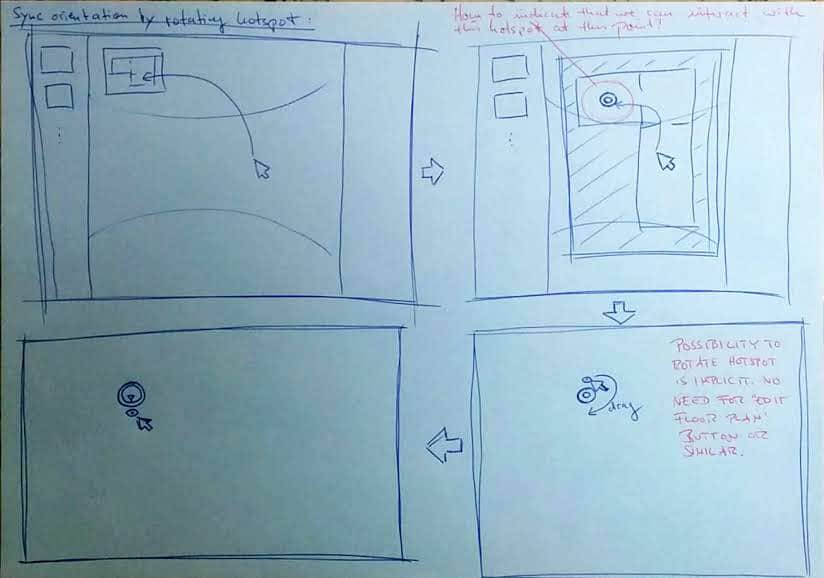 Sync orientation by rotating hotspot:
How to indicate that we can interact with
this hotspot at this point?
drag
POSSIBILITY TO
ROTATE HOTSPOT
IS IMPLICIT. NO
NEED FOR "EDIT
FLOOR PLAN"
BUTTON OR
SIMILAR.